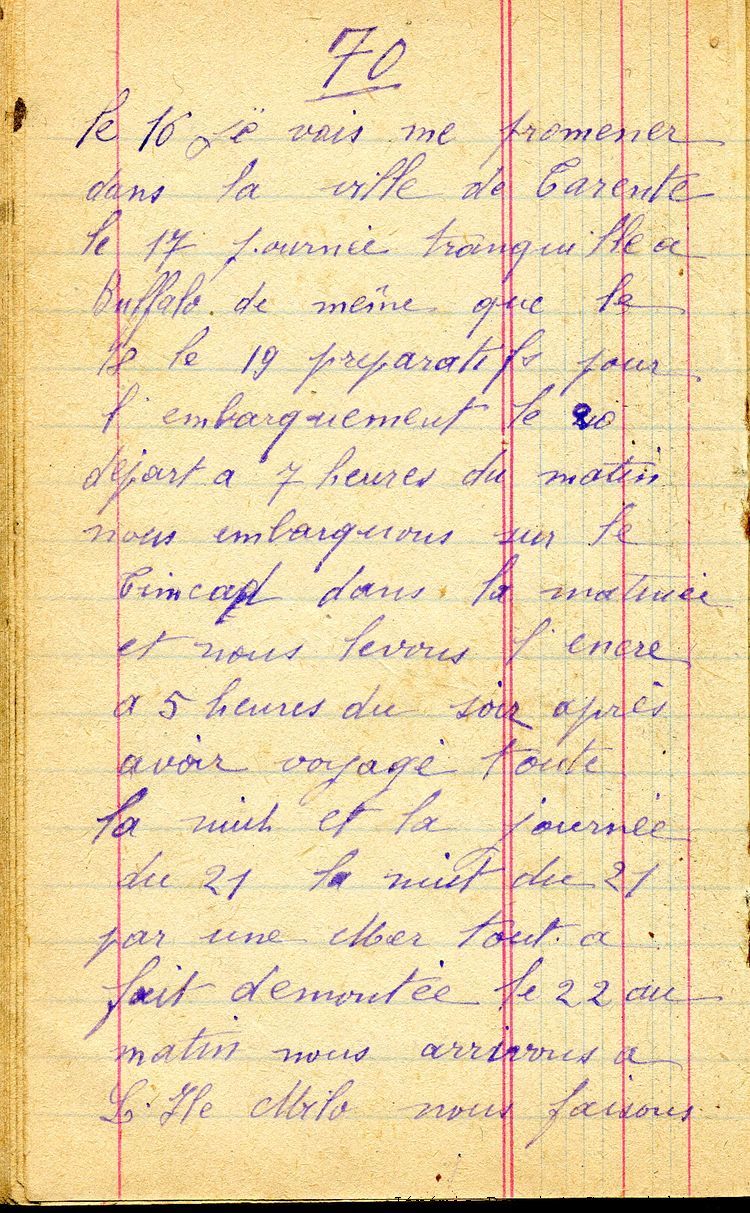 70
le 16 Je vais me promener
dans la ville de Tarente
le 17 journée tranquille a
Buffalo de même que le
18 le 19 préparatifs pour
l'embarquement le 20
départ a 7 heures du matin
nous embarquons sur le
Timcad dans la matinée
et nous levons l'encre
a 5 heures du soir après
avoir voyagé toute
la nuit et la journée
du 21 la nuit du 21
par une Mer tout a
fait demontée le 22 au
matin nous arrivons a
L'Ile Milo nous faisons